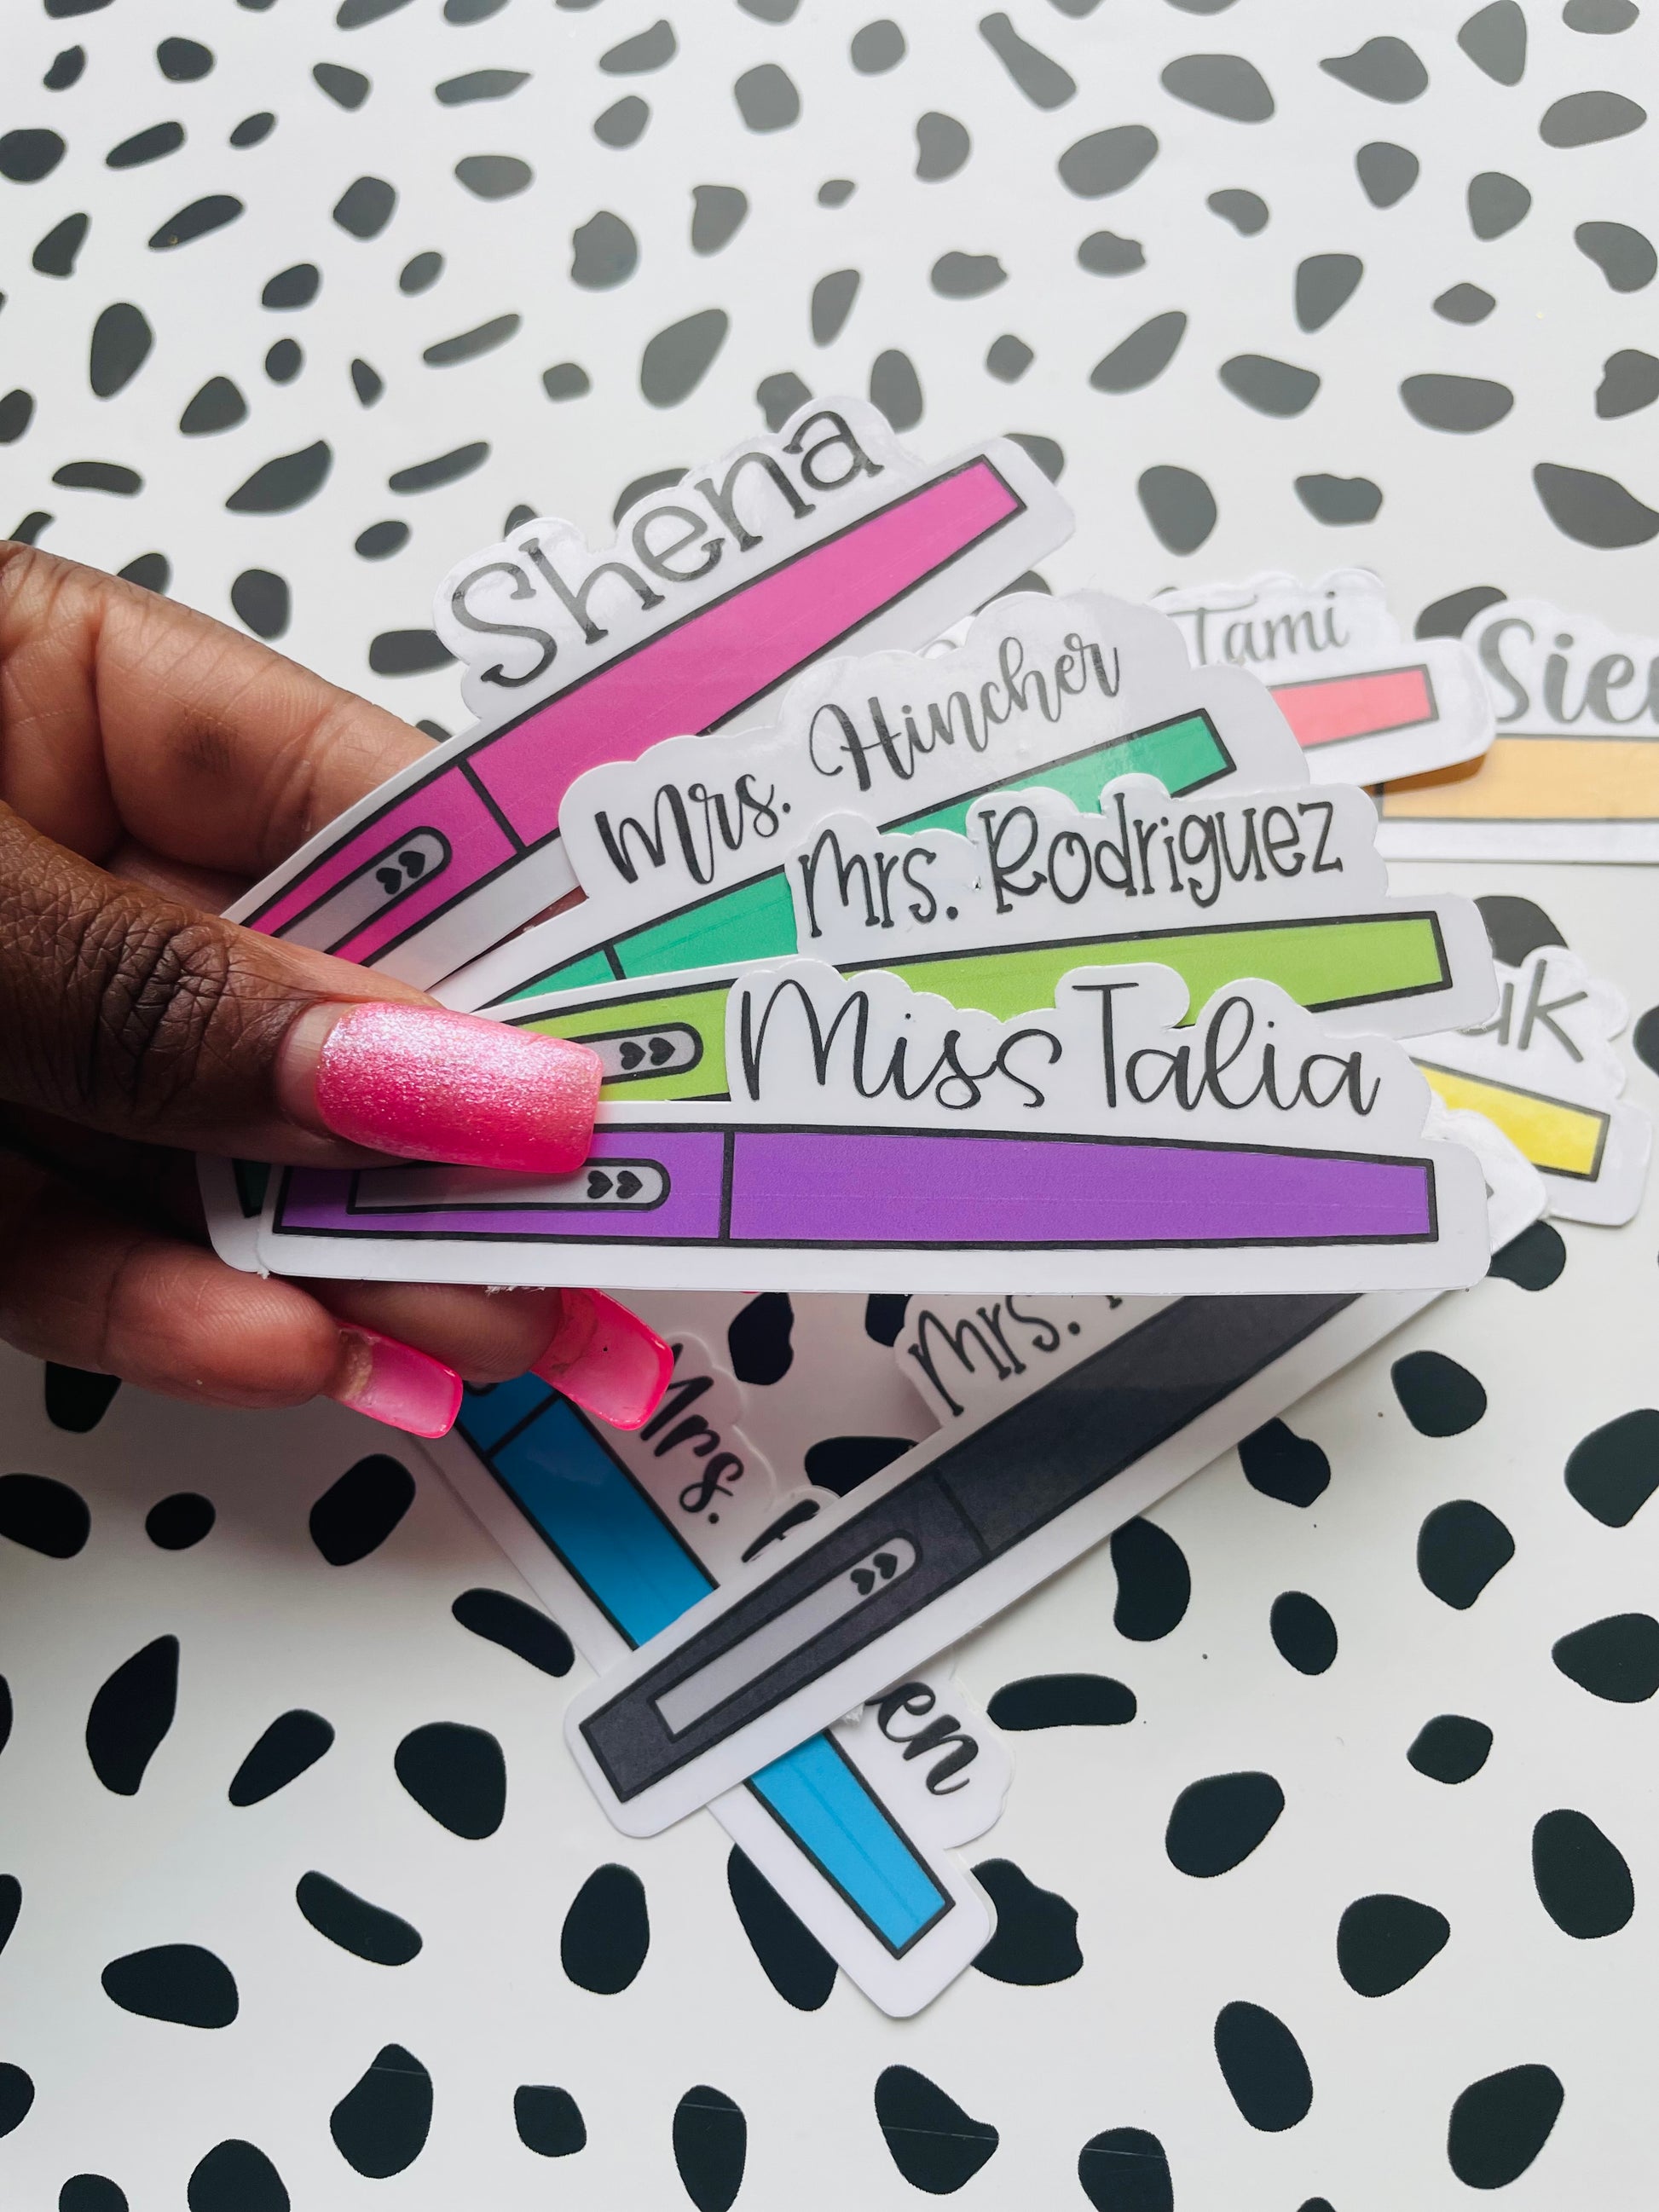 Shena
Tami
Mrs. Hincher
Mrs. Rodriguez
Miss Talia
Mrs.
Mrs.